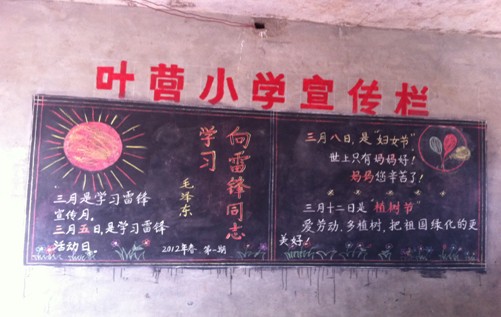 叶营小学宣传栏
向雷锋同志
学习
毛泽东
三月是学习雷锋
宣传月。
三月五日是学习雷锋
活动日。
2012年春 第一期
三月八日,是"妇女节"
世上只有妈妈好!
妈妈您辛苦了!
三月十二日是"植树节"
爱劳动、多植树、把祖国绿化的更
美好!